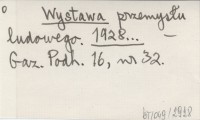 Wystawa przemysłu
ludowego. 1928...
Gaz. Podh. 16, nr 32.